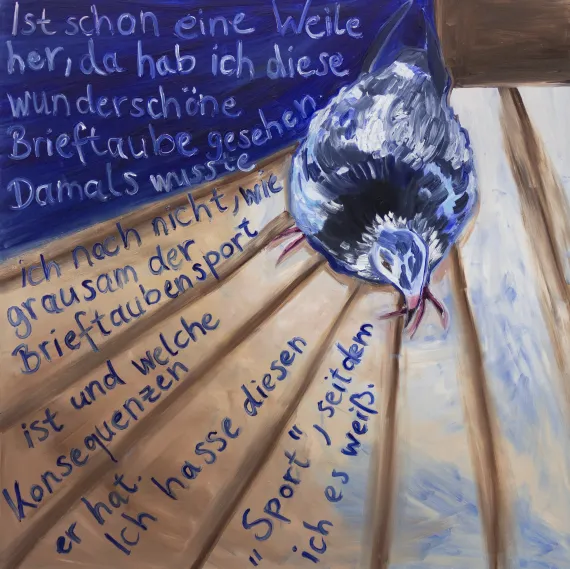 Ist schon eine Weile
her, da hab ich diese
wunderschöne
Brieftaube gesehen.
Damals wusste
ich noch nicht, wie
grausam der
Brieftaubensport
ist und welche
Konsequenzen
er hat.
Ich hasse diesen
„Sport“, seitdem
ich es weiß.